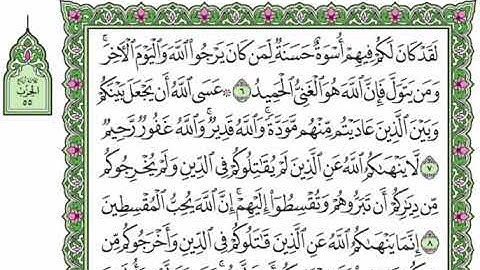 لَقَدْ كَانَ لَكُمْ فِيهِمْ أُسْوَةٌ حَسَنَةٌ لِّمَن كَانَ يَرْجُوا۟ ٱللَّهَ وَٱلْيَوْمَ ٱلْءَاخِرَ ۚ
وَمَن يَتَوَلَّ فَإِنَّ ٱللَّهَ هُوَ ٱلْغَنِىُّ ٱلْحَمِيدُ ٦ ۞ عَسَى ٱللَّهُ أَن يَجْعَلَ بَيْنَكُمْ
وَبَيْنَ ٱلَّذِينَ عَادَيْتُم مِّنْهُم مَّوَدَّةً ۚ وَٱللَّهُ قَدِيرٌ ۚ وَٱللَّهُ غَفُورٌ رَّحِيمٌ
٧ لَّا يَنْهَىٰكُمُ ٱللَّهُ عَنِ ٱلَّذِينَ لَمْ يُقَٰتِلُوكُمْ فِى ٱلدِّينِ وَلَمْ يُخْرِجُوكُم
مِّن دِيَٰرِكُمْ أَن تَبَرُّوهُمْ وَتُقْسِطُوٓا۟ إِلَيْهِمْ ۚ إِنَّ ٱللَّهَ يُحِبُّ ٱلْمُقْسِطِينَ
٨ إِنَّمَا يَنْهَىٰكُمُ ٱللَّهُ عَنِ ٱلَّذِينَ قَٰتَلُوكُمْ فِى ٱلدِّينِ وَأَخْرَجُوكُم مِّن
الحزب
٥٥